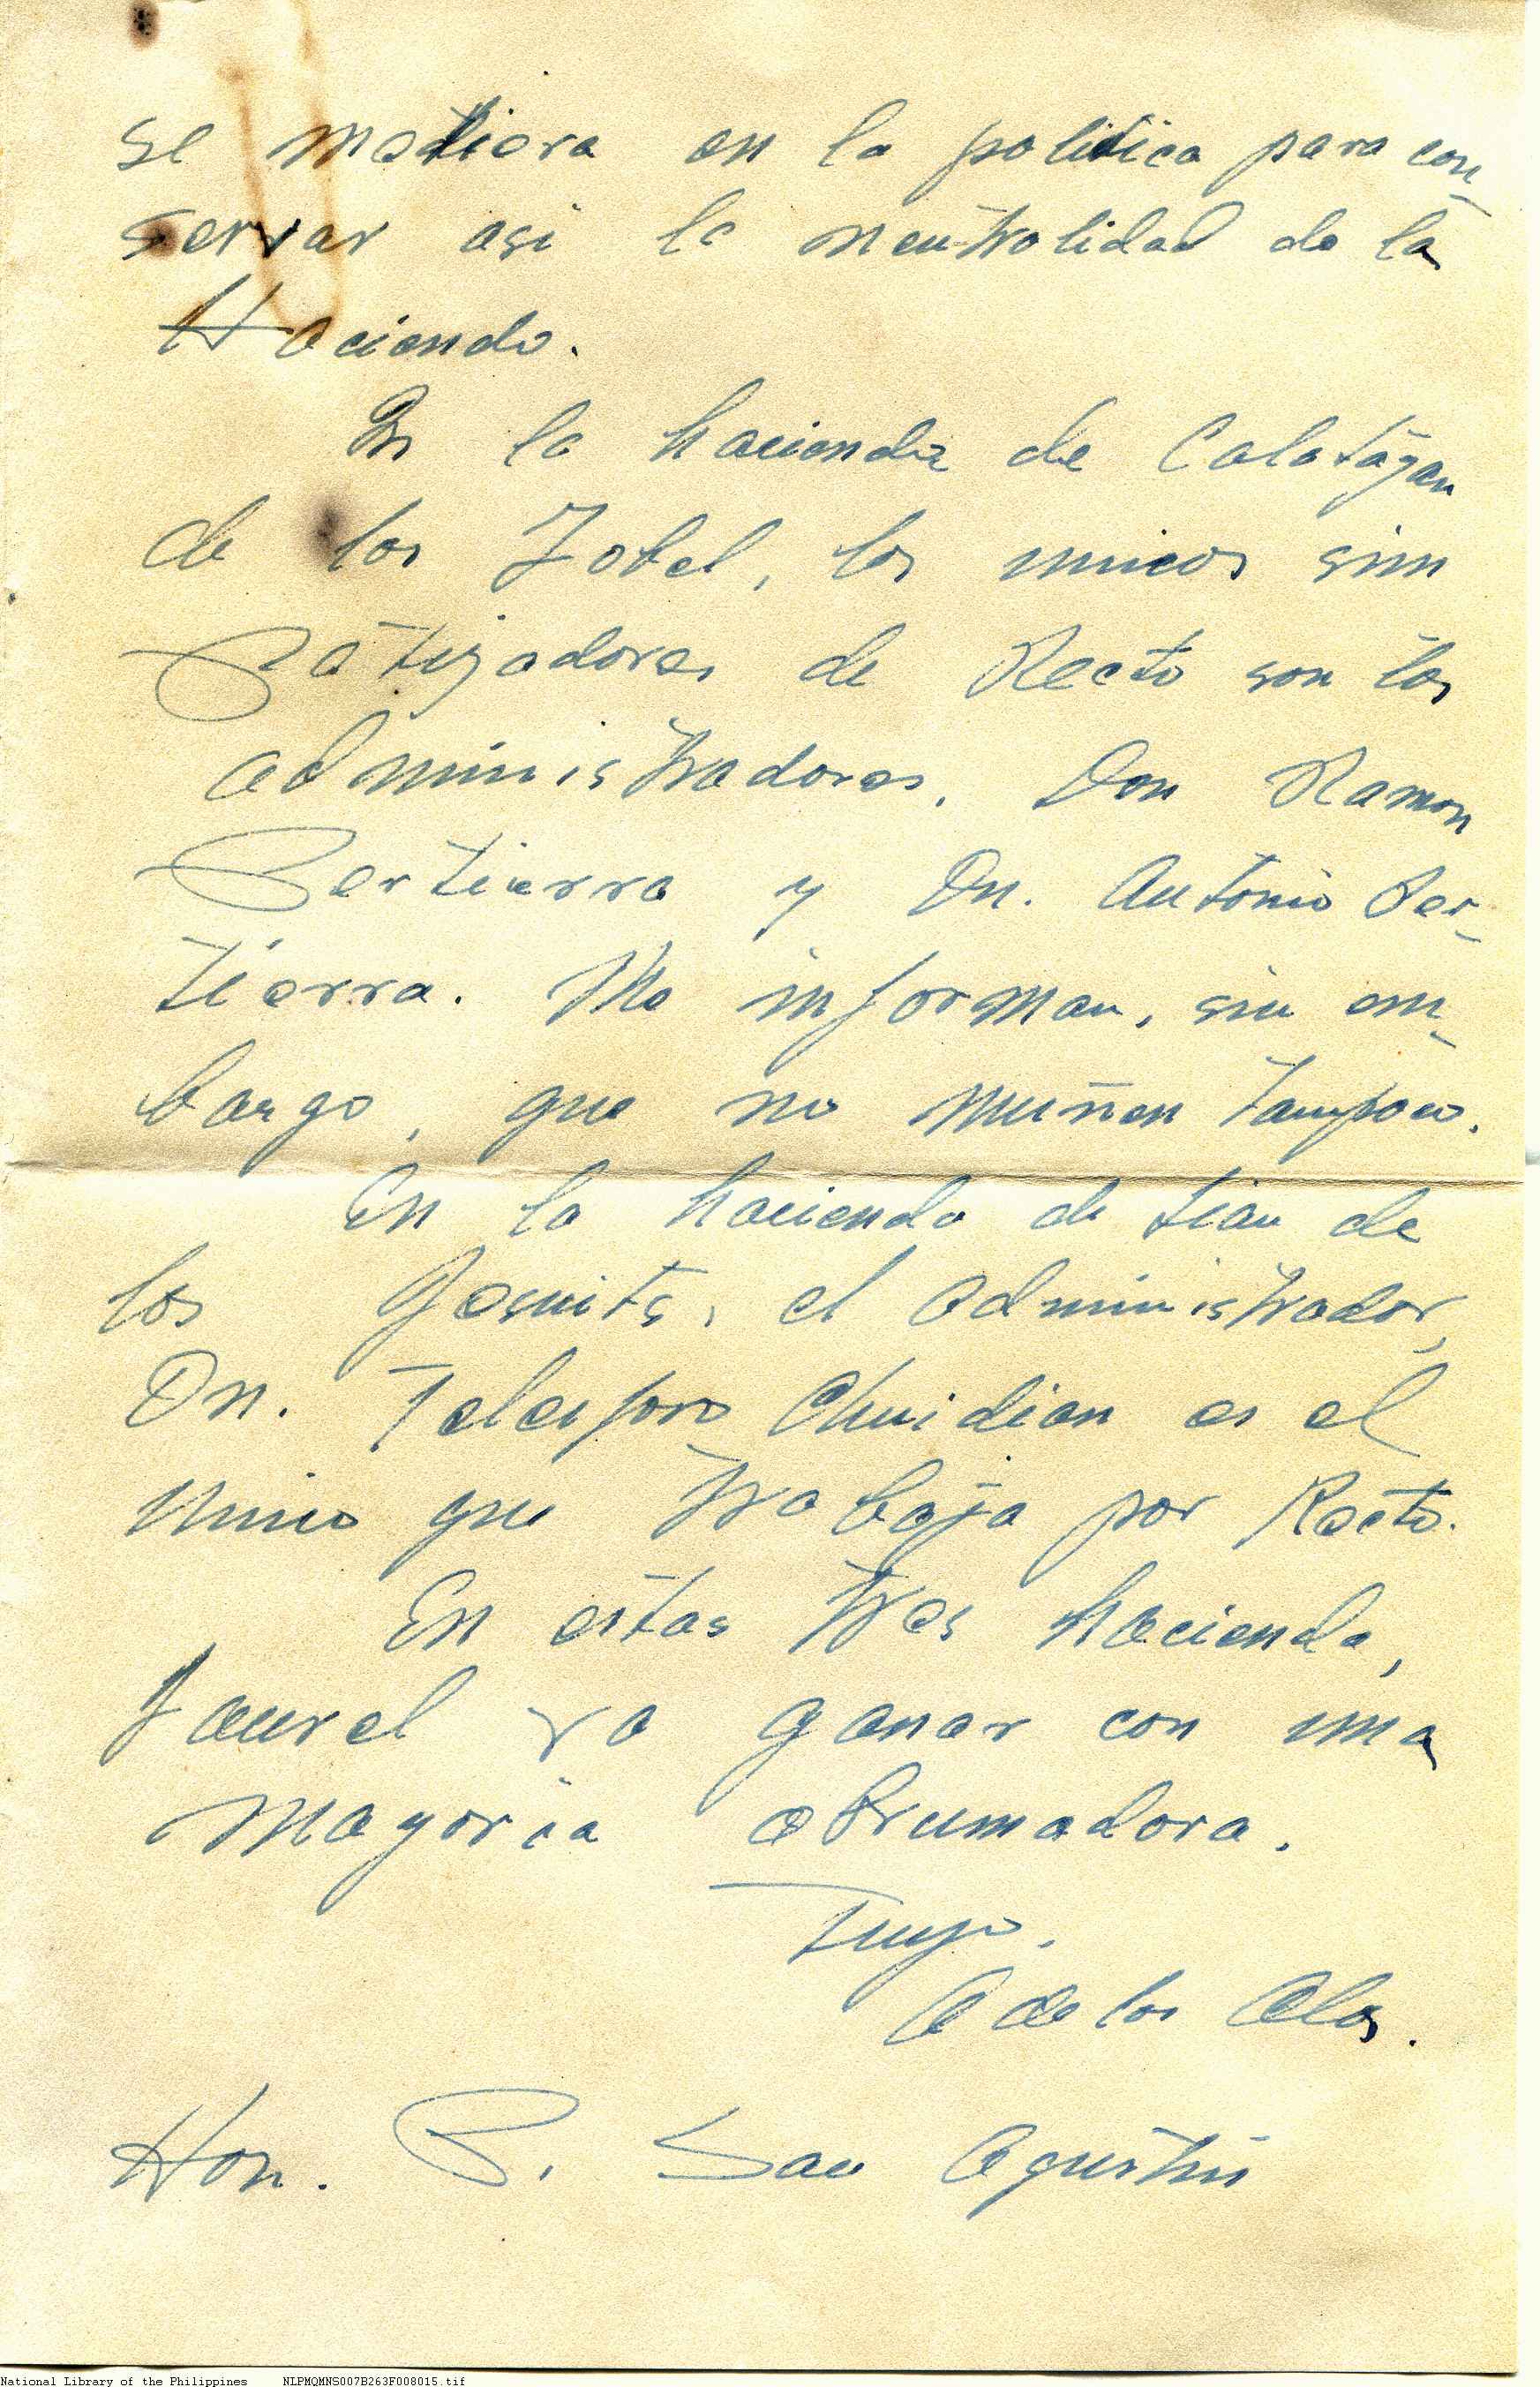 se metiera en la politica para con-
servar asi la neutralidad de la
Hacienda.
En la hacienda de Calatagan
de los Zobel, los unicos sim
patizadores de Recto son los
administradores, Don Ramon
Pertierra y Dn. Antonio Per-
tierra. Me informan, sin em-
bargo, que no muñen tampoco.
En la hacienda de Lian de
los Jesuits, el administrador,
Dn. Telesforo Chuidian es el
unico que trabaja por Recto.
En estas tres hacienda,
Laurel va ganar con una
mayoria abrumadora.
Tuyo,
A de las Alas.
Hon. P. San Agustin
National Library of the Philippines NLPMQMNS007B263F008015.tif